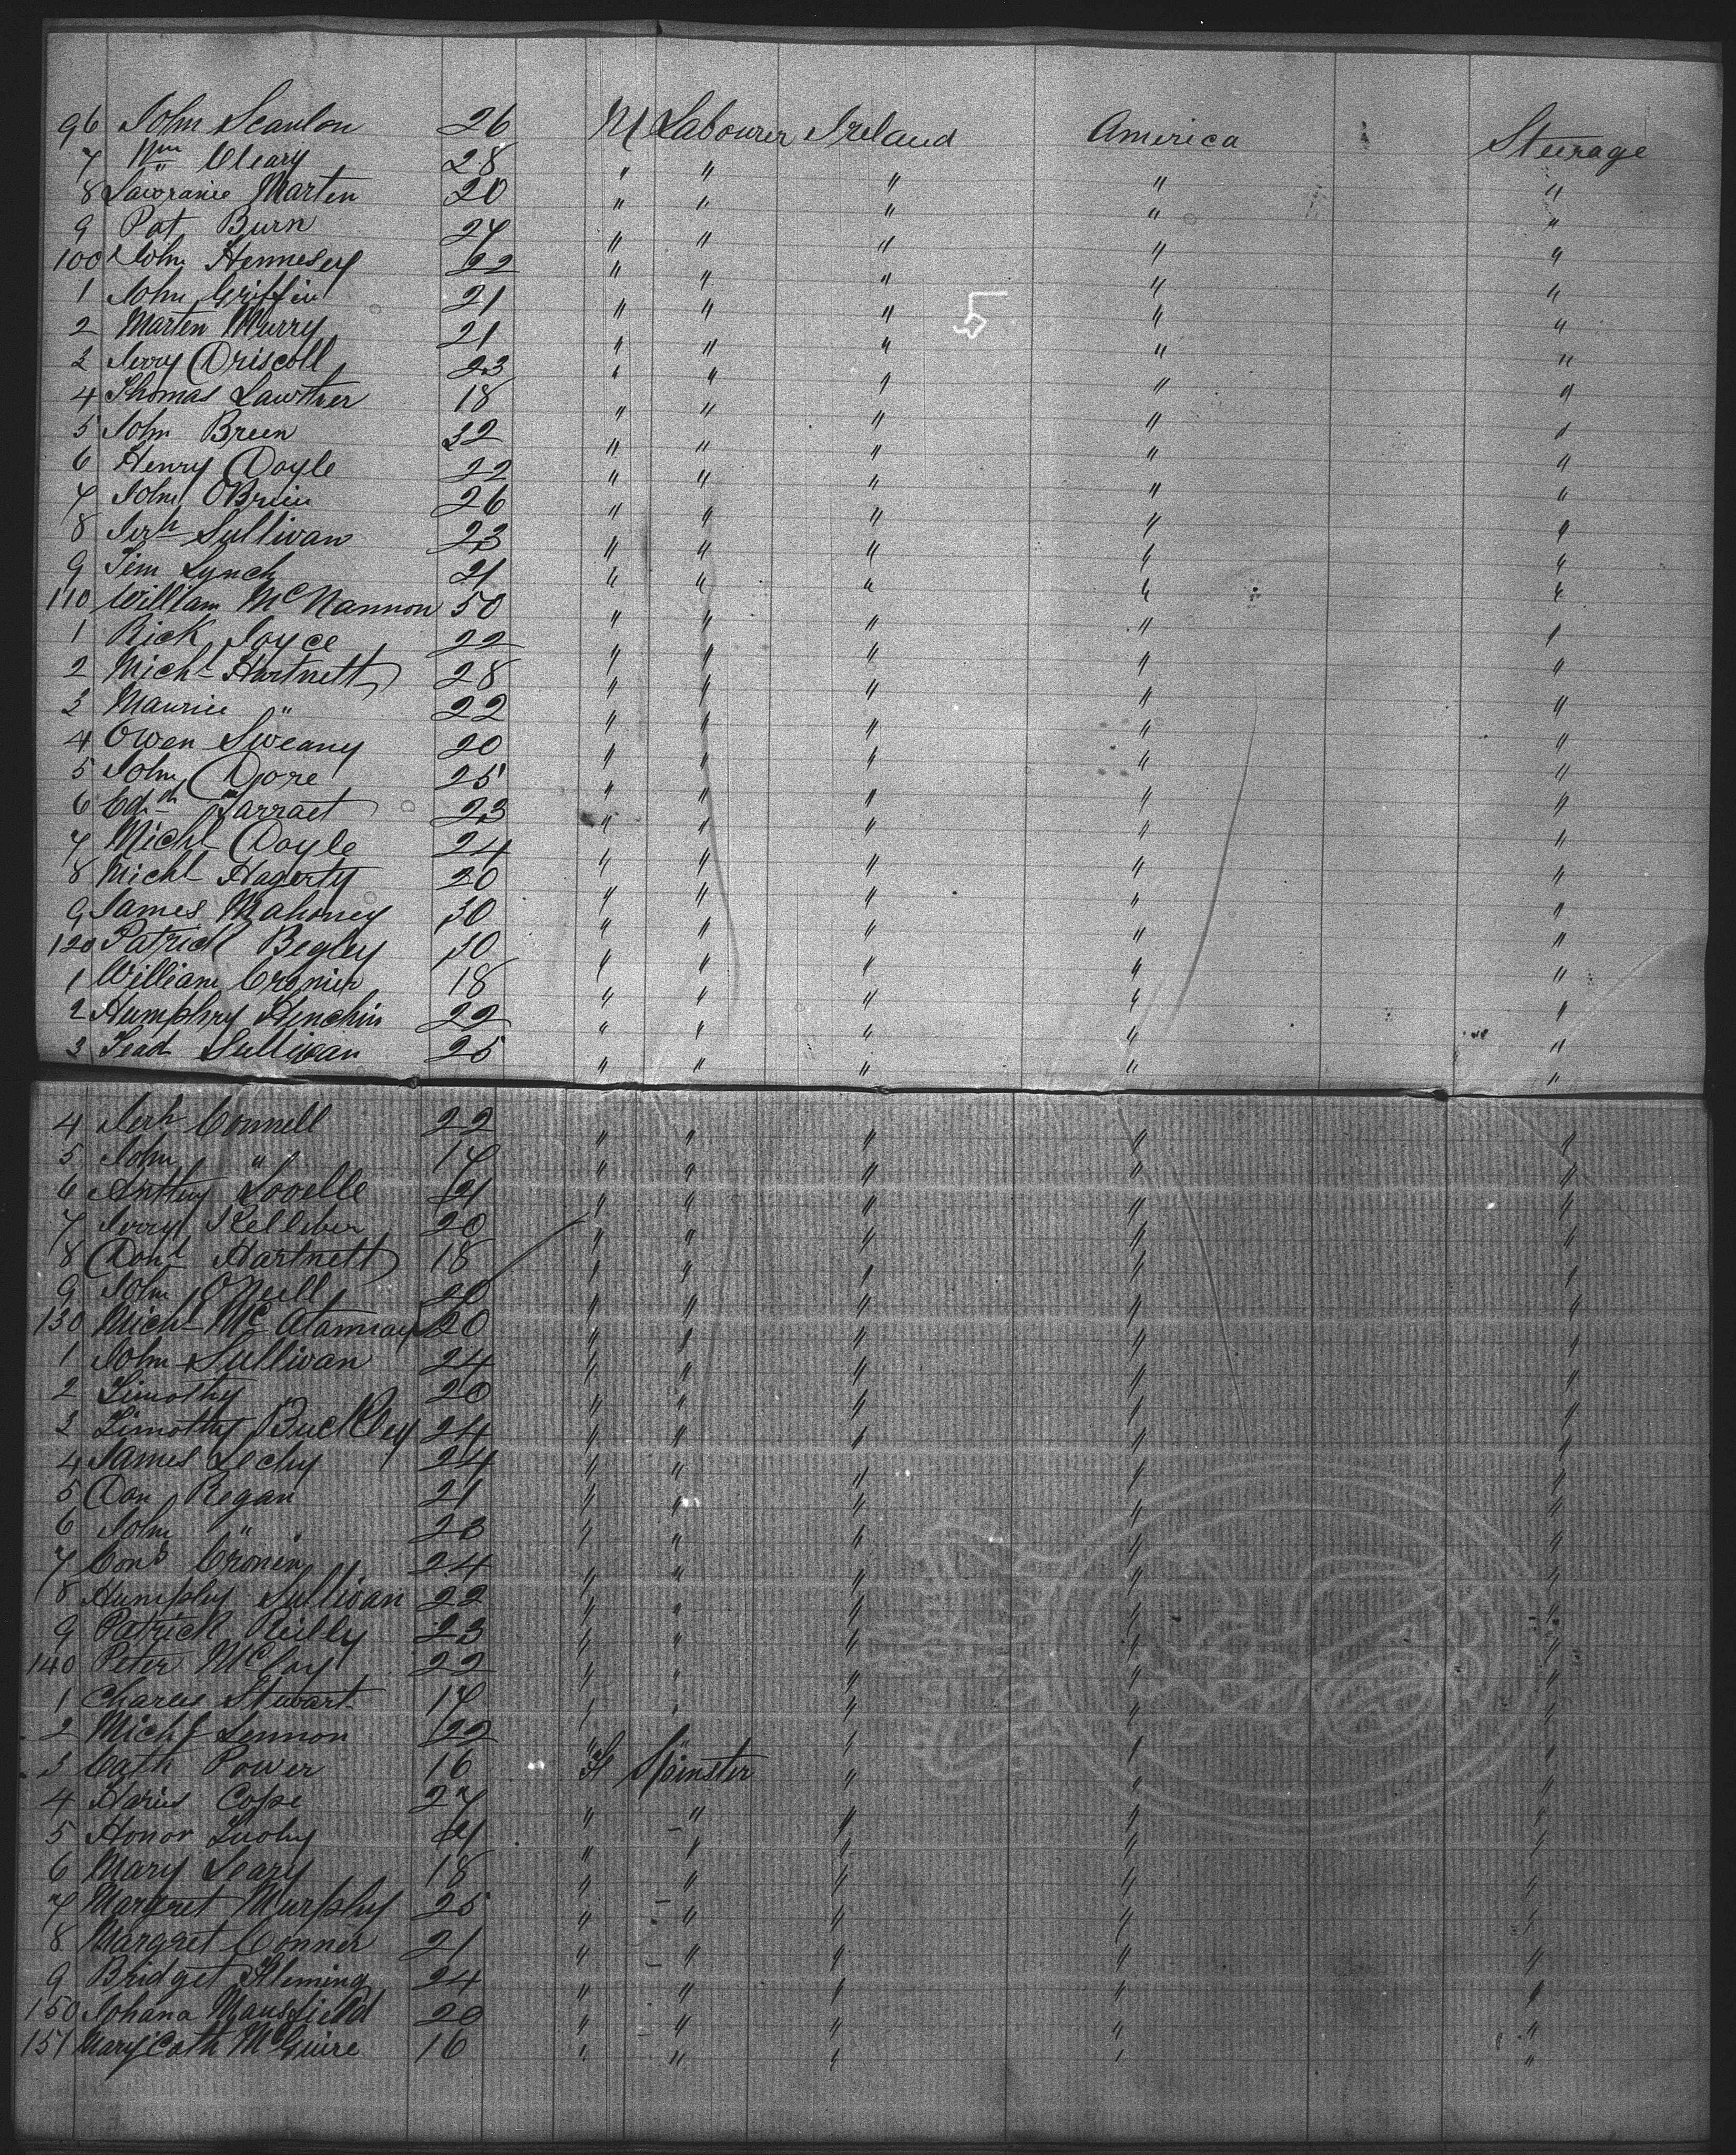 96 John Scanlon 26 M Labourer Ireland America Steerage
7 Wm Cleary 28 " " " " "
8 Lawrance Marten 20 " " " " "
9 Pat Burn 24 " " " " "
100 John Hennesey 22 " " " " "
1 John Griffin 21 " " " " "
2 Marten Murry 21 " " " " "
3 Jerry Driscoll 23 " " " " "
4 Thomas Lawther 18 " " " " "
5 John Breen 32 " " " " "
6 Henry Doyle 22 " " " " "
7 John OBrien 26 " " " " "
8 Jerh Sullivan 23 " " " " "
9 Tim Lynch 21 " " " " "
110 William Mc Nannon 50 " " " " "
1 Rick Joyce 22 " " " " "
2 Michl Hartnett 28 " " " " "
3 Maurice " 22 " " " " "
4 Owen Sweany 20 " " " " "
5 John Dore 25 " " " " "
6 Edd 23 " " " " "
7 Michl Doyle 24 " " " " "
8 Michl Hagerty 20 " " " " "
9 James Mahoney 30 " " " " "
120 Patrick Begley 30 " " " " "
1 William Cronin 18 " " " " "
2 Humphry Henchin 22 " " " " "
3 Sullivan 25 " " " " "
4 Jerh Connell 22 " " " " "
5 John " 17 " " " " "
6 Anthny Lovelle 21 " " " " "
7 Jerry Kelliher 20 " " " " "
8 Danl Hartnett 18 " " " " "
9 John ONeill 20 " " " " "
130 Michl Mc 20 " " " " "
1 John Sullivan 24 " " " " "
2 Timothy 20 " " " " "
3 Timothy Buckley 24 " " " " "
4 James Lechy 24 " " " " "
5 Dan Regan 21 " " " " "
6 John " 23 " " " " "
7 Cons Cronin 24 " " " " "
8 Humphy Sullivan 22 " " " " "
9 Patrick Reilly 23 " " " " "
140 Peter McCoy 22 " " " " "
1 Charles Stewart 17 " " " " "
2 Michl Lennon 22 " " " " "
3 Cath Power 16 F Spinster " " "
4 Cope 27 " " " " "
5 Honor Tuohy 21 " " " " "
6 Mary Leary 18 " " " " "
7 Margret Murphy 25 " " " " "
8 Margret Conner 21 " " " " "
9 Bridget Fleming 24 " " " " "
150 Johana Mansfield 20 " " " " "
151 Mary Cath McGuire 16 " " " " "
5